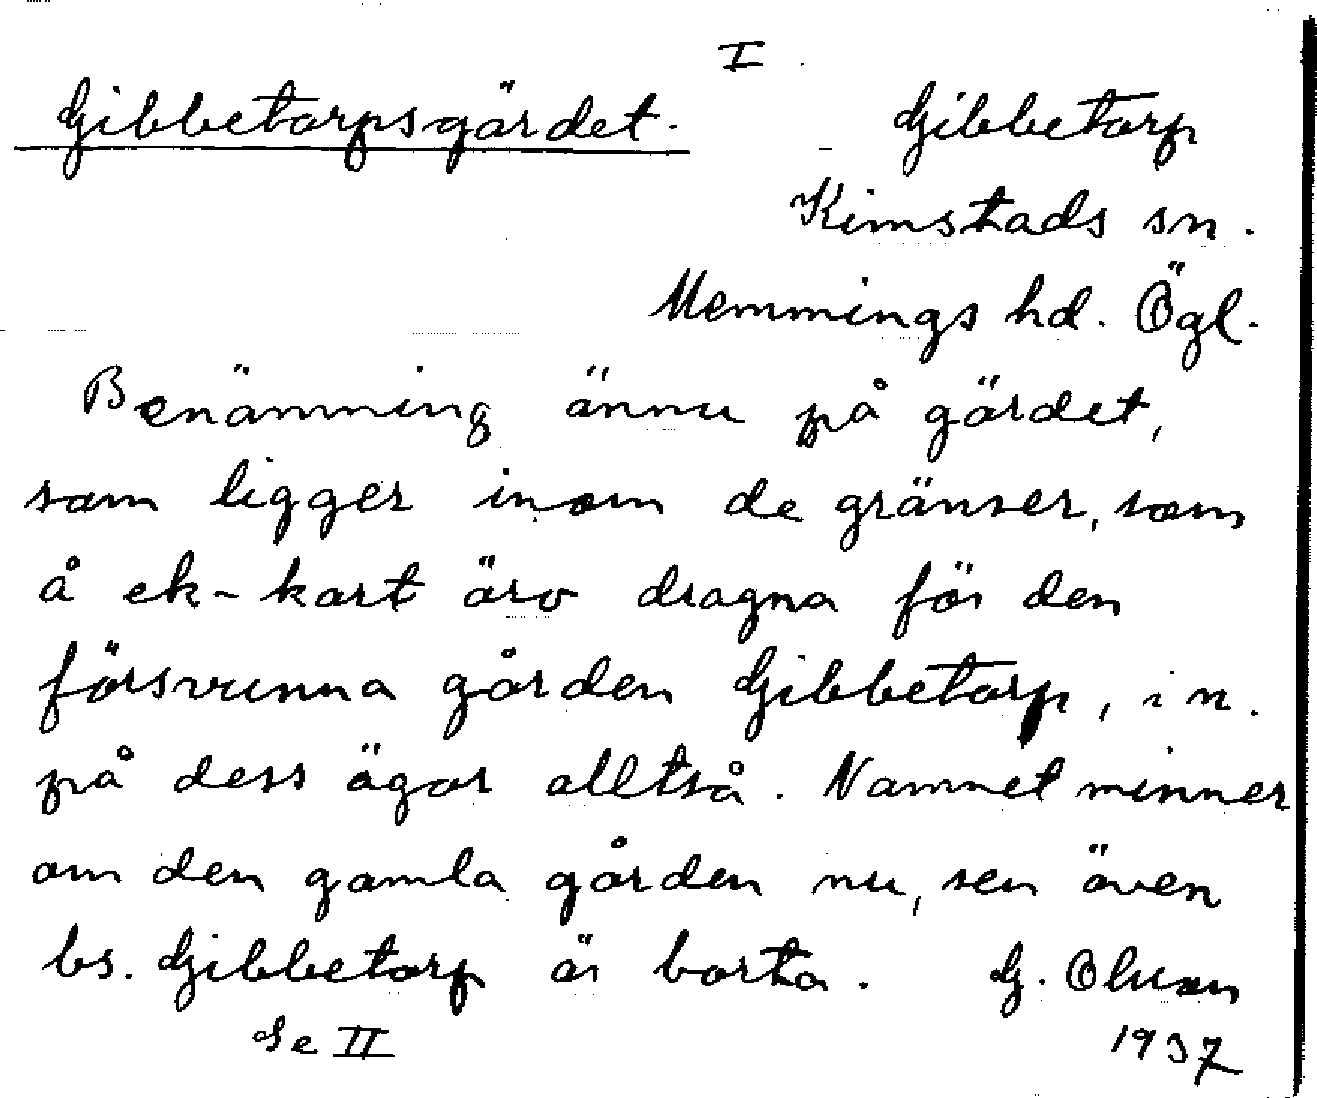 I
Gibbetorpsgärdet. Gibbetorp
Kimstads sn.
Memmings hd. Ögl.
Benämning ännu på gärdet,
som ligger inom de gränser, som
å ek-kart äro dragna för den
försvunna gården Gibbetorp, in.
på dess ägor alltså. Namnet minner
om den gamla gården nu, sen även
bs. Gibbetorp är borta. G. Olsson
Se II 1937